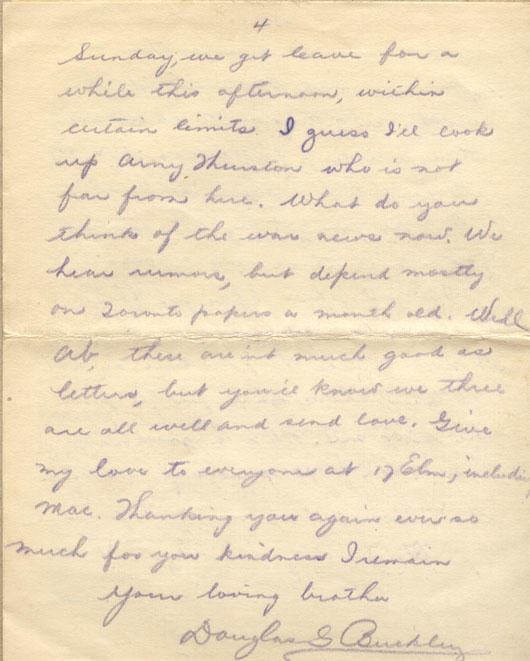 4
Sunday, we get leave for a
while this afternoon, within
certain limits. I guess I'll
up Army Thurston who is not
far from here. What do you
think of the war news now. We
hear rumors, but depend mostly
on Toronto papers a month old. Well
Ab, these are'nt much good as
letters, but you'll know we three
are all well and send love. Give
my love to everyone at 17 Elm, includin
Mac. Thanking you again ever so
much for you kindness I remain
Your loving brother
Douglas G Buckley